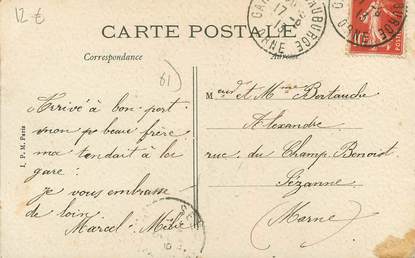 12 €
CARTE POSTALE
Correspondance
Adresse
61
Arrivé à bon port
mon po beau frère
ma tendait à la
gare :
je vous embrasse
de loin.
Marcel : Mélie
Meur et Mme Bertauche
Alexandre
rue du Champ Benoist
Sézanne
(Marne)
I. P. M. Paris